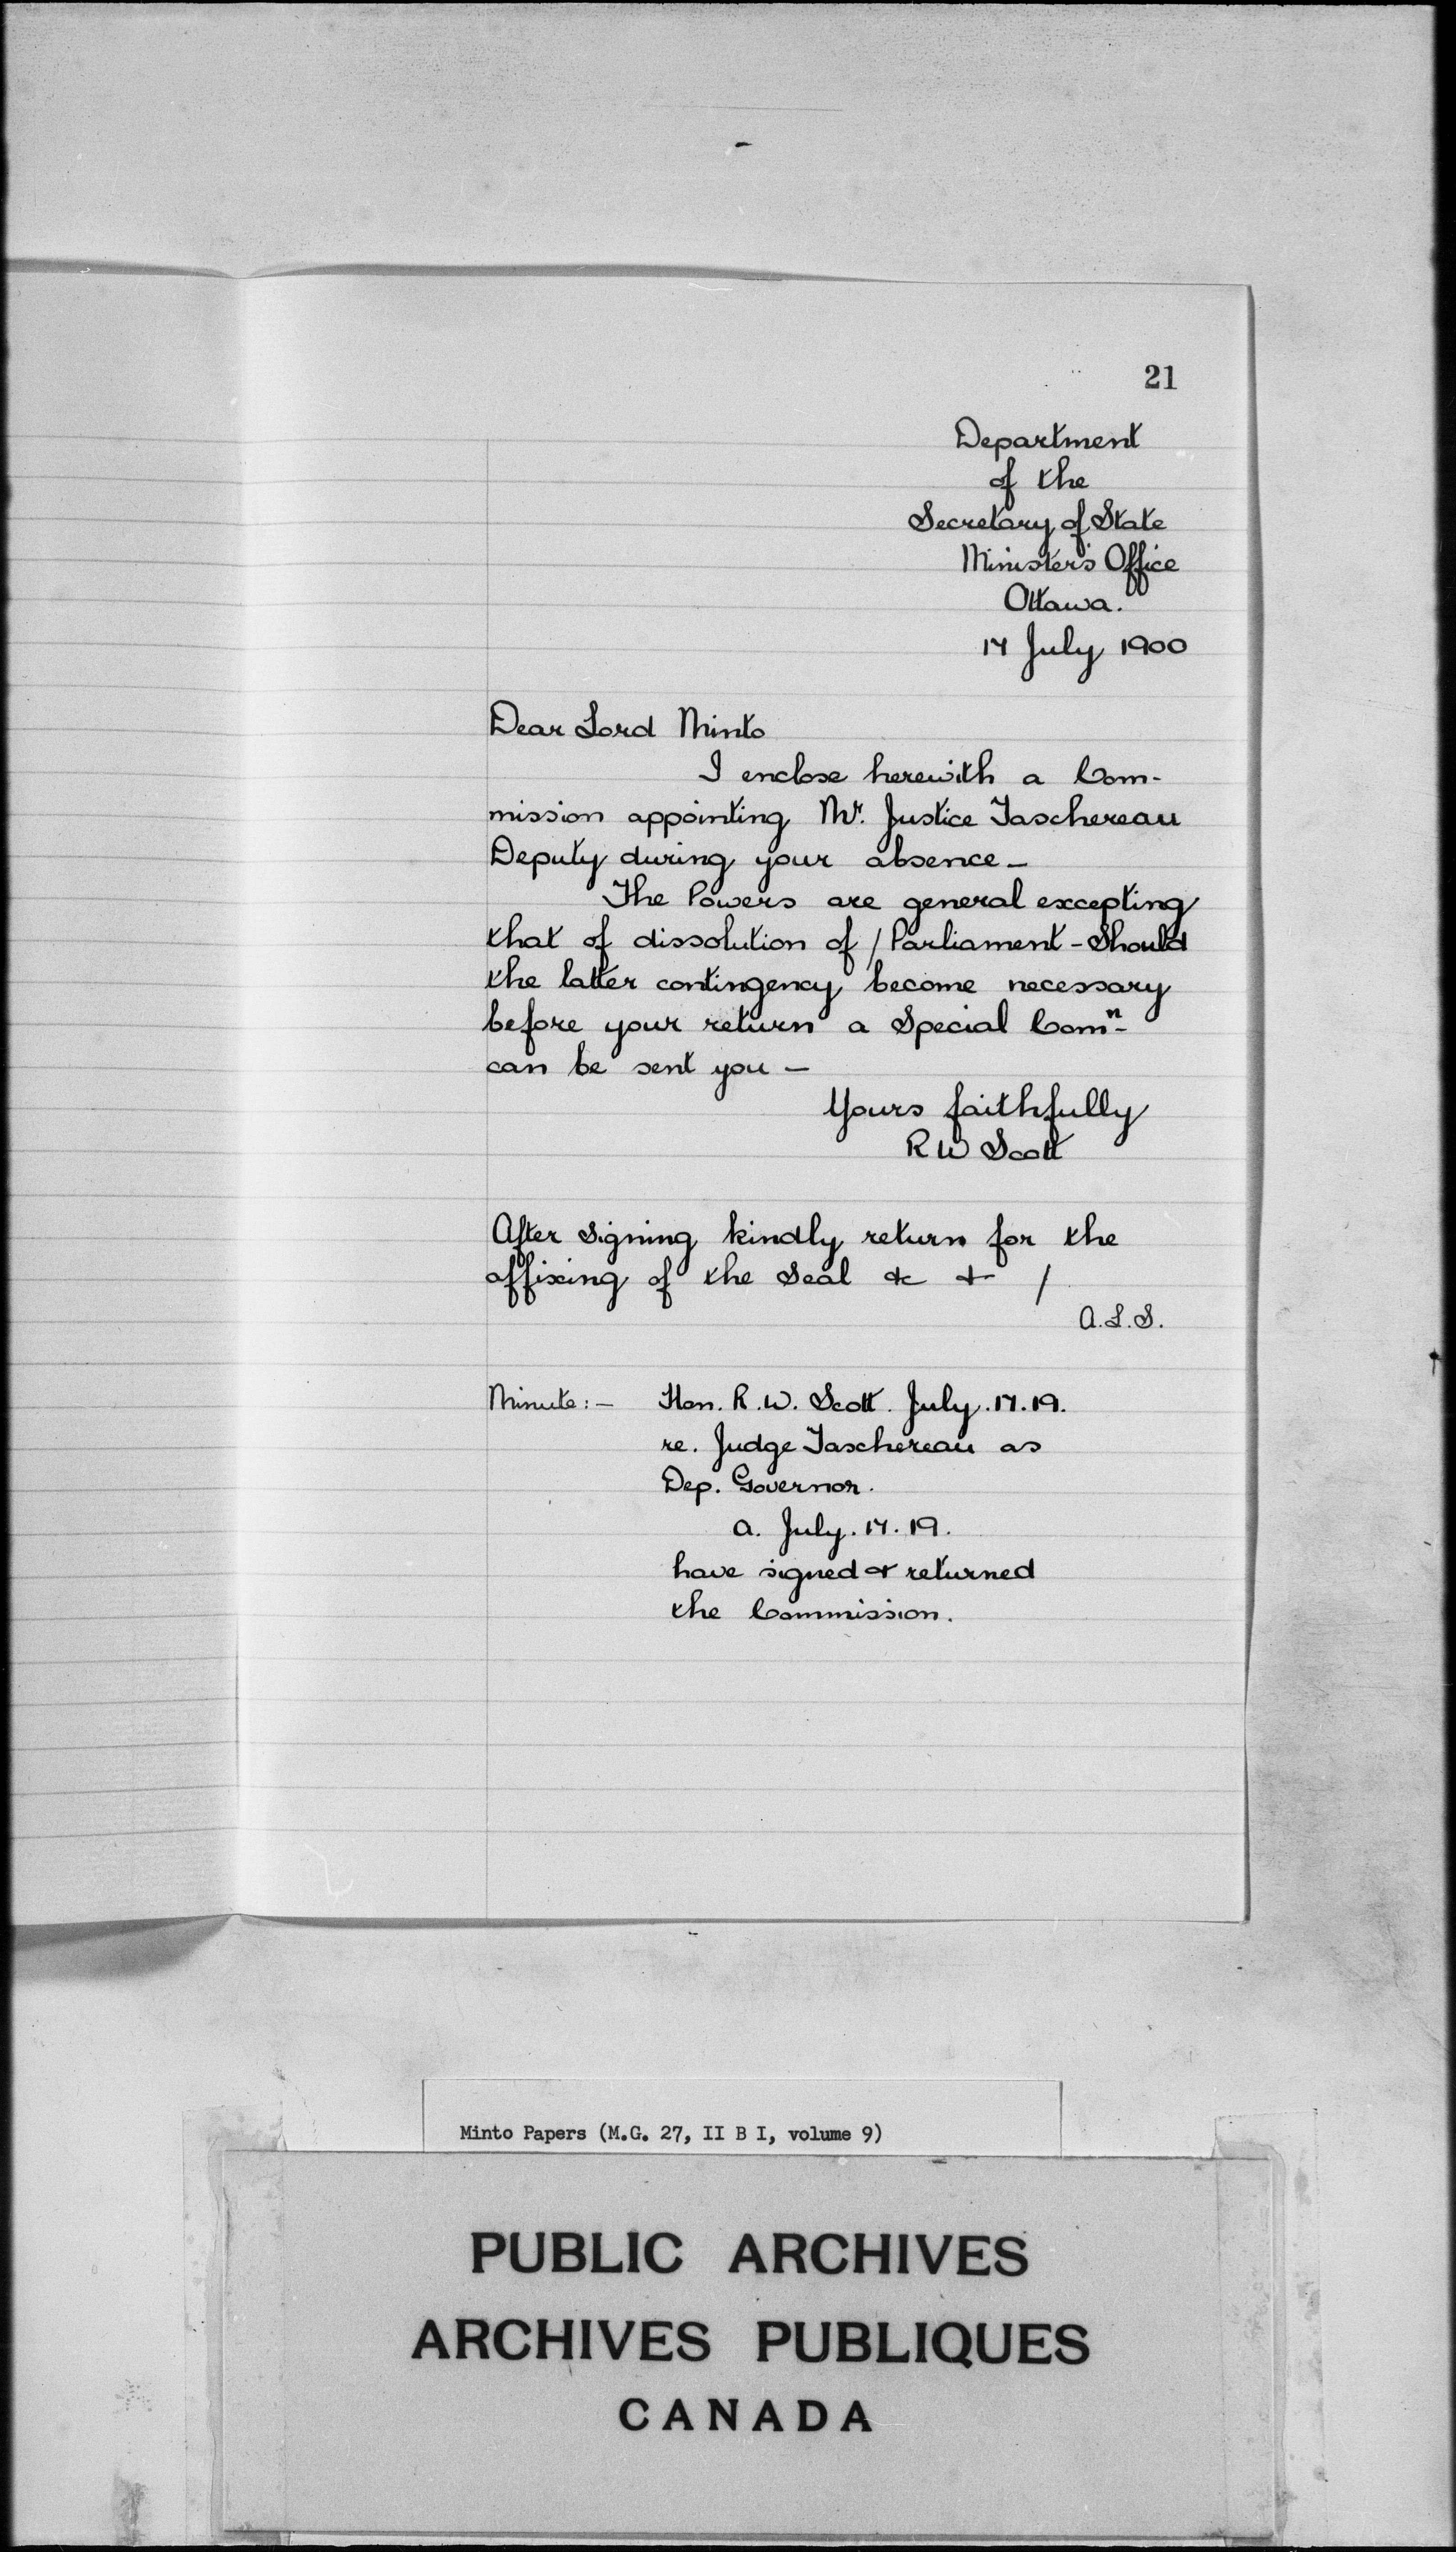 21
Department
of the
Secretary of State
Minister's Office
Ottawa.
17 July 1900
Dear Lord Minto
I enclose herewith a Com-
mission appointing Mr. Justice Taschereau
Deputy during your absence —
The Powers are general excepting
that of dissolution of / Parliament - Should
the latter contingency become necessary
before your return a Special Comn-
can be sent you —
Yours faithfully
R W Scott
After signing kindly return for the
affixing of the Seal &c & /
A.L.S.
Minute: — Hon. R. W. Scott. July. 17. 19.
re. Judge Taschereau as
Dep. Governor.
a. July. 17. 19.
have signed & returned
the Commission.
Minto Papers (M.G. 27, II B I, volume 9)
PUBLIC ARCHIVES
ARCHIVES PUBLIQUES
CANADA